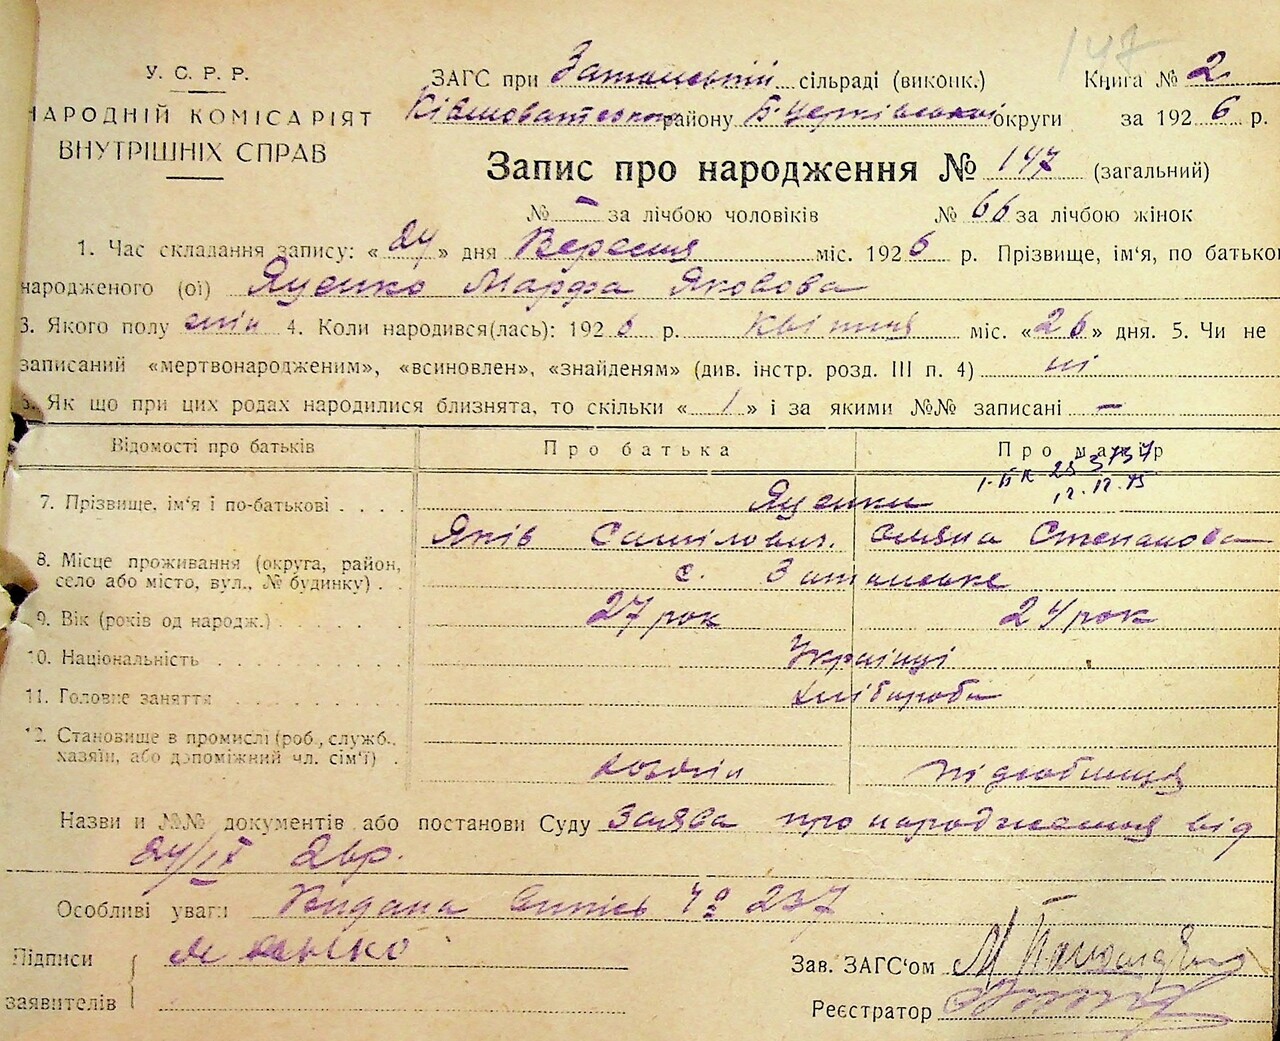 147
У. С. Р. Р.
НАРОДНІЙ КОМІСАРІЯТ
ВНУТРІШНІХ СПРАВ
ЗАГС при сільраді (виконк.) Книга № 2
району Б-Церківської округи за 1926 р.
Запис про народження № 147 (загальний)
№ – за лічбою чоловіків № 66 за лічбою жінок
1. Час складання запису: «24» дня Вересня міс. 1926 р. Прізвище, ім'я, по батькові
народженого (ої) Яценко Марфа Яковова
3. Якого полу жін 4. Коли народився(лась): 1926 р. квітня міс. «26» дня. 5. Чи не
записаний «мертвонародженим», «всиновлен», «знайденям» (див. інстр. розд. III п. 4) ні
6. Як що при цих родах народилися близнята, то скільки «1» і за якими №№ записані –
Відомості про батьків Про батька Про матір
12.12.75
7. Прізвище, ім'я і по-батькові . . . . Яценки
Яків Самілович. Степанова
8. Місце проживання (округа, район,
село або місто, вул., № будинку) . . с.
9. Вік (років од народж.) 27 рок 24 рок
10. Національність Українці
11. Головне заняття хліборобы
12. Становище в промислі (роб., служб.,
хазяїн, або допоміжний чл. сім'ї) . хозяїн
Назви и №№ документів або постанови Суду Заява про народження від
24/IX 26р.
Особливі уваги Видана Випись № 237
Підписи
заявителів
Зав. ЗАГС'ом М
Реєстратор